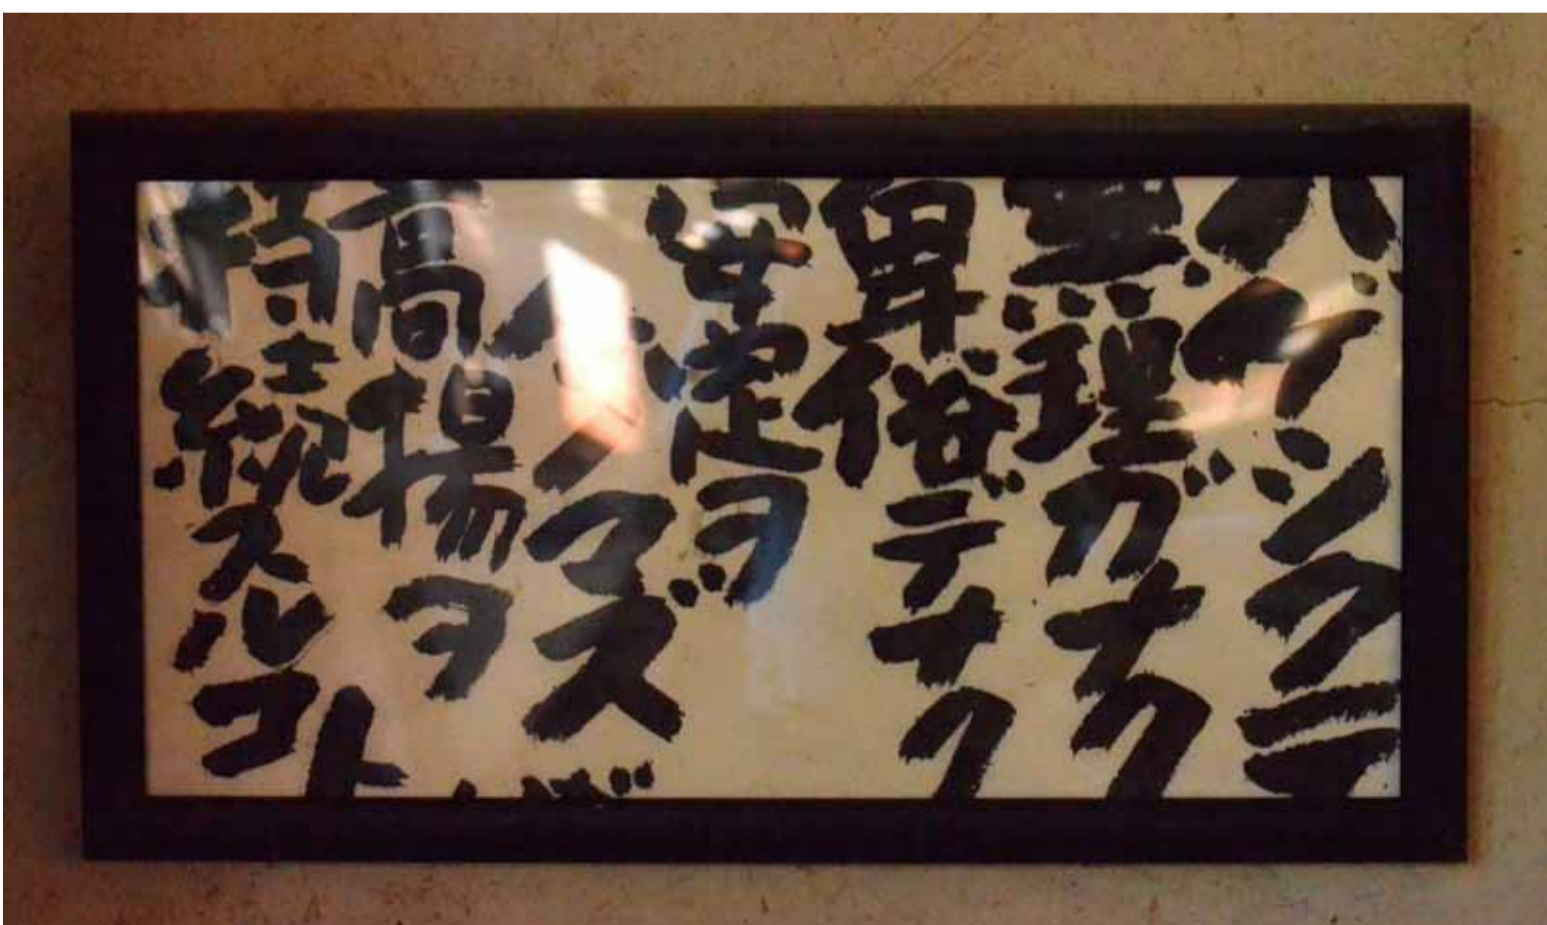 ハゲシクテ
無理ガナク
卑俗デナク
安定ヲ
ノマズ
高揚ヲ
持続スルコト